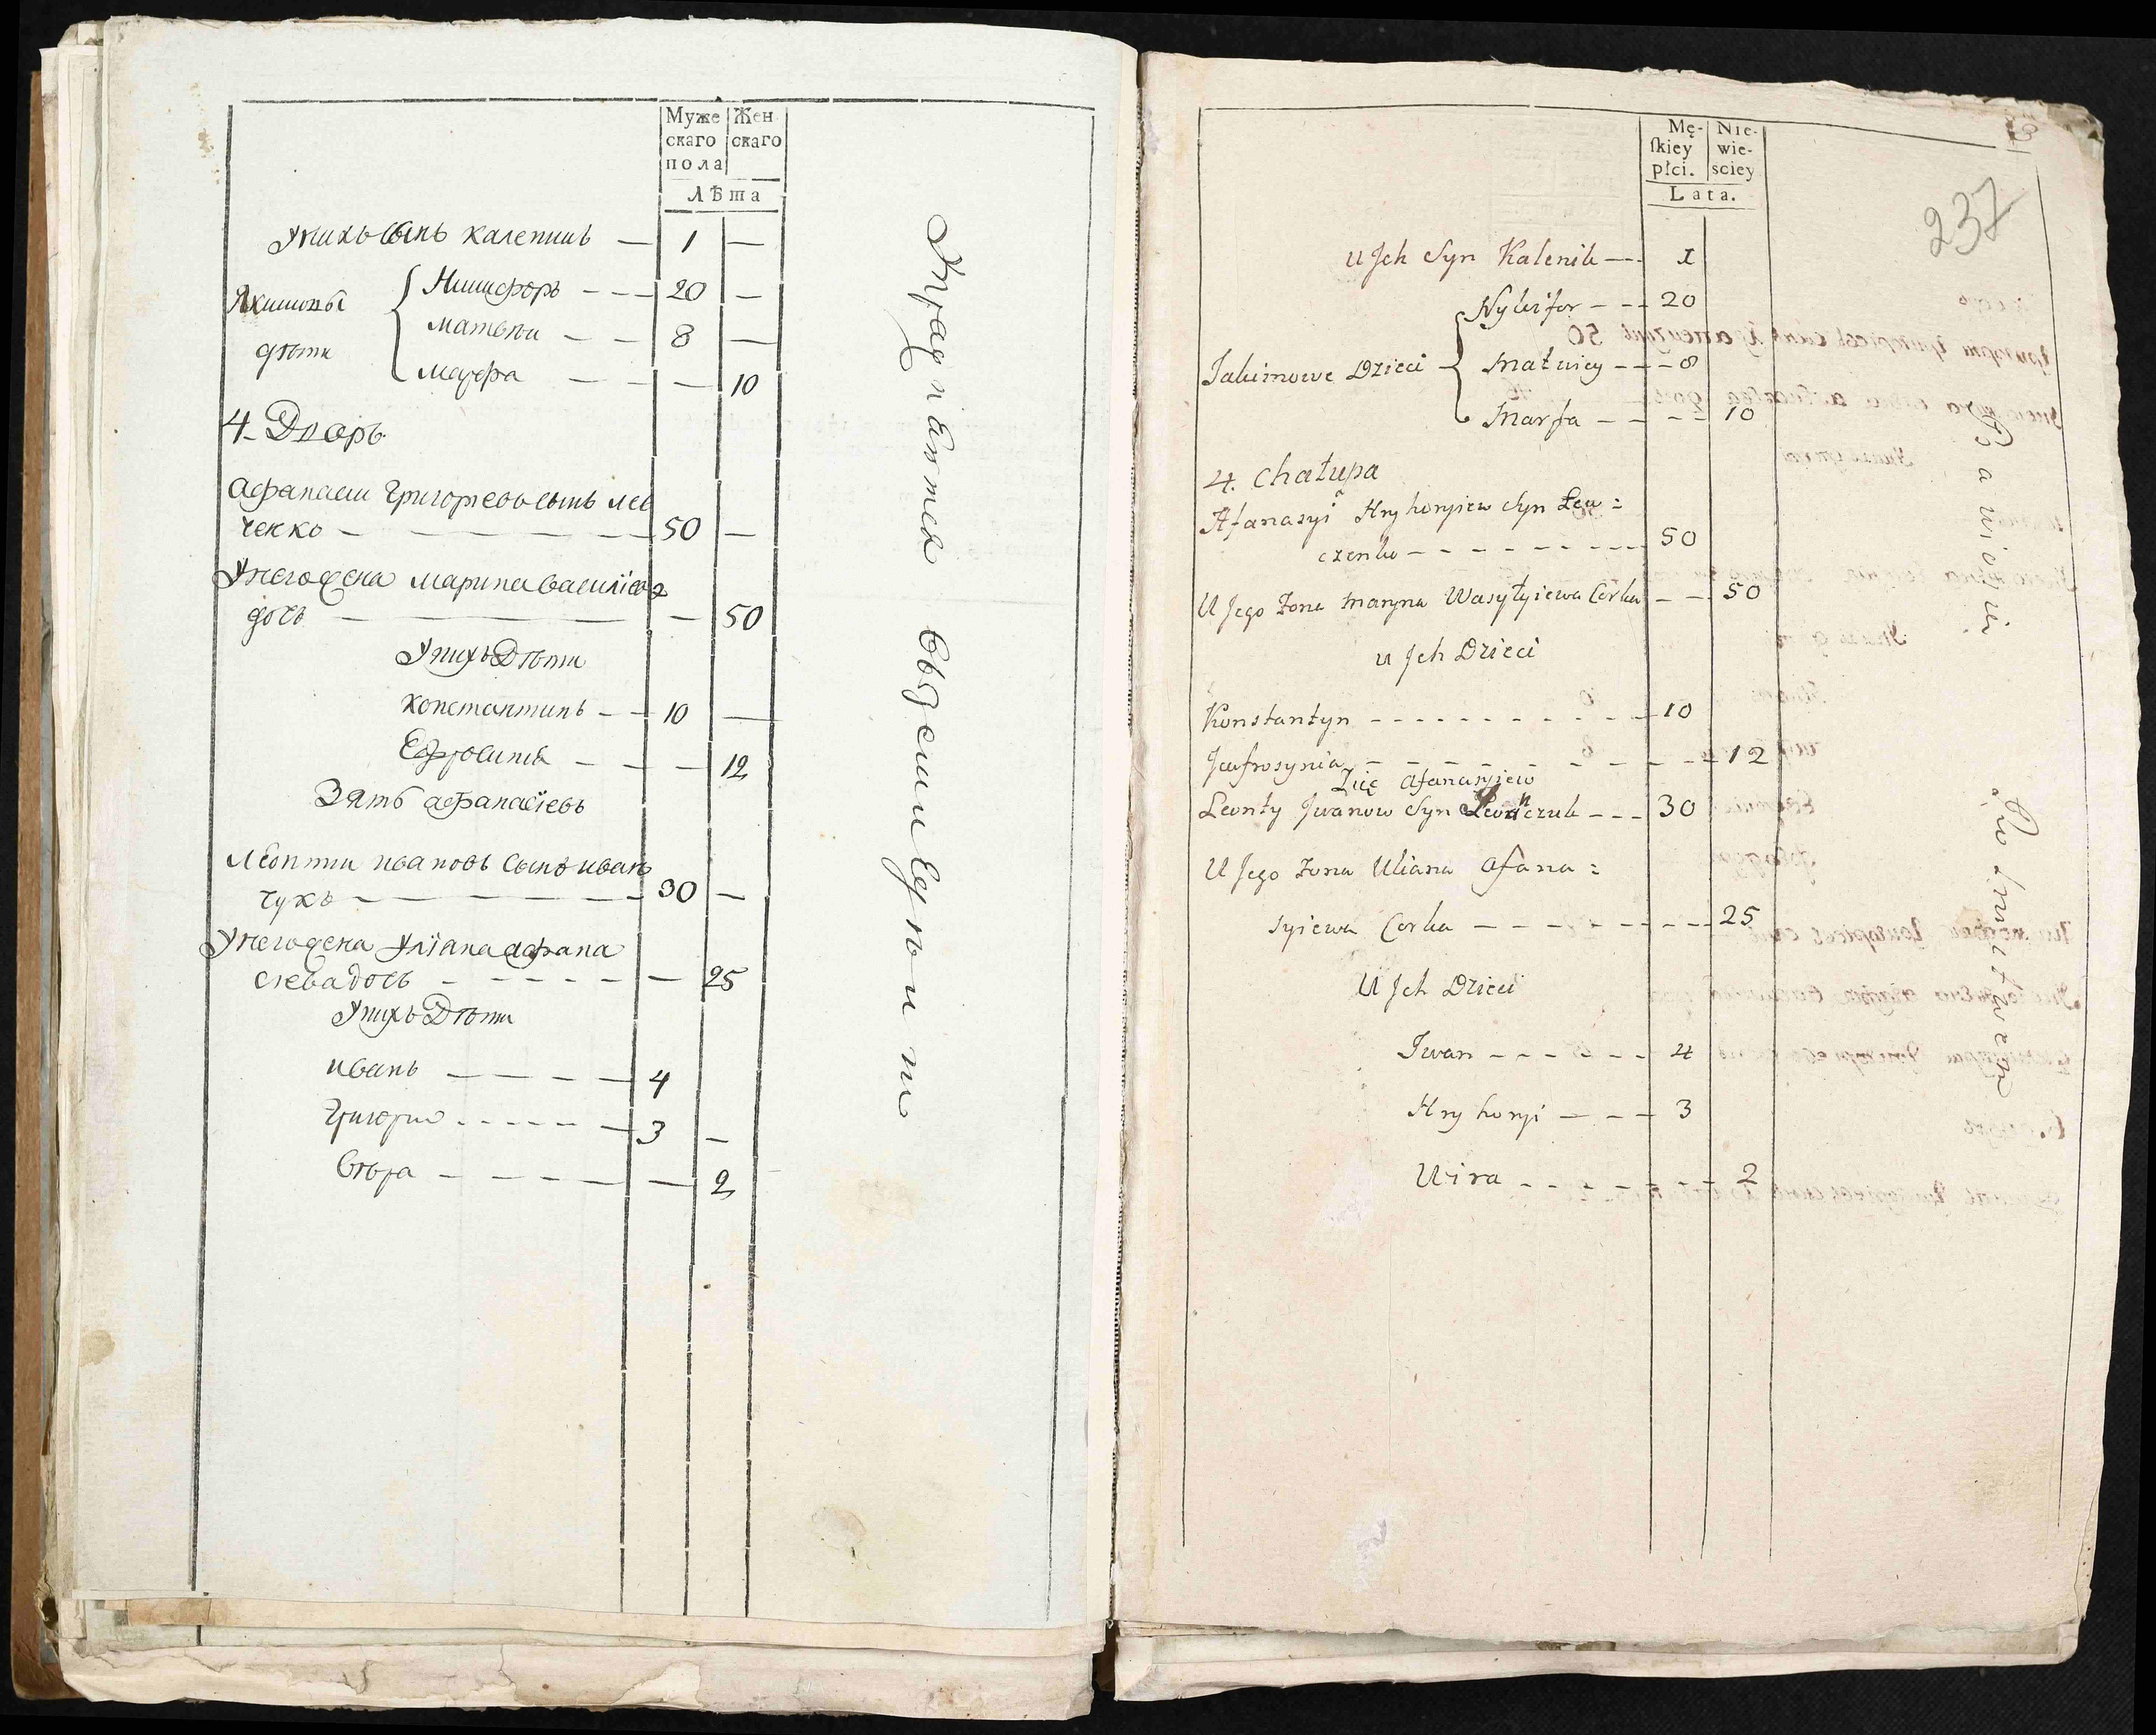 Муже скаго пола
Жен скаго
Лѣта
Унихъ сынъ каленикъ — 1 —
Якимовы дѣти
Никифоръ — — 20 —
матвѣи — — 8 —
марфа — — — 10
4. Дворъ
афанасии григорьевъ сынъ лев
ченко — — — — 50 —
Унего жена марина василіева
дочь — — — — 50
Унихъ Дѣти
константинъ — — 10 —
Ефросинiя — — — 12
Зять афанасіевъ
леонтии ивановъ сынъ иван
чукъ — — — — 30 —
Унего жена Улiана афана
сиева дочь — — — — — 25
Унихъ Дѣти
иванъ — — — — 4
григории — — — — 3 —
вѣра — — — — — 2
въ единъ
237
Mę-skiey płci.
Nie-wie-sciey
Lata.
u Jch Syn Kalenik — 1
Jakimowe Dzieci
Nykifor — — 20
Matwiey — — 8
Marfa — — — — 10
4. Chałupa
Afanasyi Hryhoryiew Syn Lew=
czenko — — — — 50
U Jego Żona Maryna Wasyłyiewa Corka — — 50
u Jch Dzieci
Konstantyn — — — — 10
Jeufrosynia — — — — 12
Zię Afanasyiew
Leonty Jwanow Syn Jwanczuk — — 30
U Jego Żona Uliana Afana=
syiewa Corka — — — — 25
U Jch Dzieci
Jwan — — — 4
Hryhoryi — — — 3
Wira — — — — 2